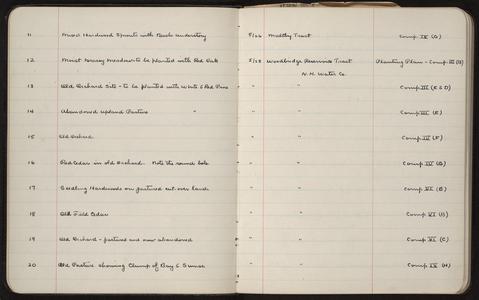 11 Mixed Hardwood Sprouts with Beech understory 5/26 Maltby Tract Comp. IX (G)
12 Moist rocky Meadow to be planted with Red Oak 5/28 Woodbridge Reservoir Tract Planting Plan - Comp. III (B)
N.H. Water Co.
13 Old Orchard Site - to be planted with White & Red Pine " " Comp. III (E & D)
14 Abandoned upland Pasture " " " Comp. III (E)
15 Old Orchard " " Comp. IV (F)
16 Red Cedar in old Orchard. Note the round bole " " Comp. IV (G)
17 Seedling Hardwoods on pastured cut-over land " " Comp. VI (B)
18 Old Field Cedar " " Comp. VI (B)
19 Old Orchard - pastured and now abandoned " " Comp. VI (C)
20 Old Pasture showing Clump of Bay & Sumac " " Comp. IX (H)